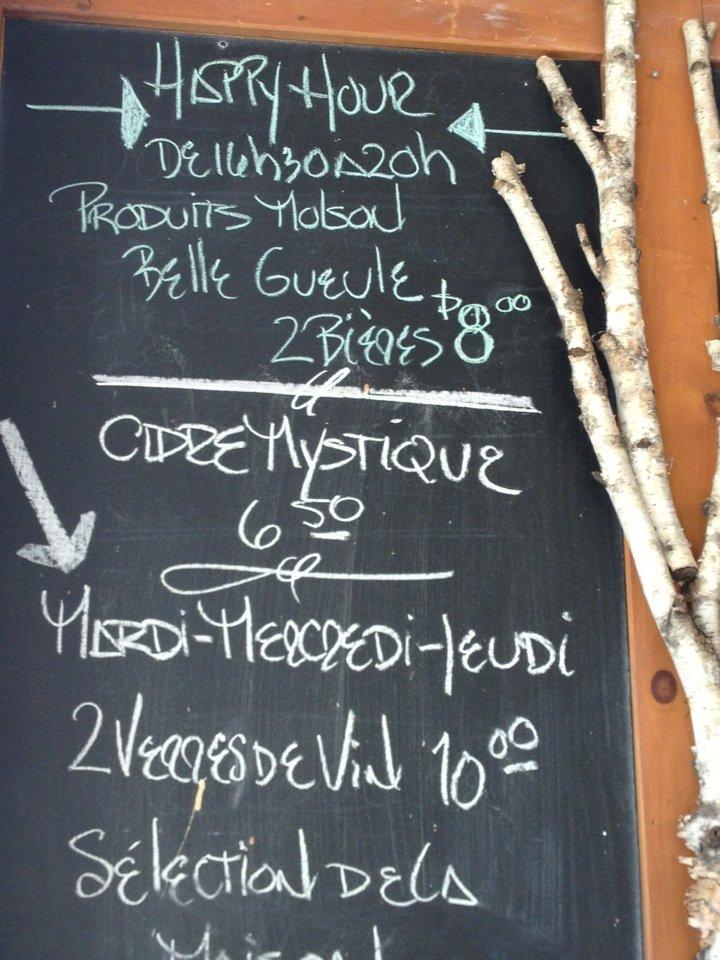 Happy Hour
De 16h30 à 20h
Produits Molson
Belle Gueule
2 Bières $8.00
Cidre Mystique
6.50
Mardi-Mercredi-Jeudi
2 Verres de Vin 10.00
Sélection de la
Maison